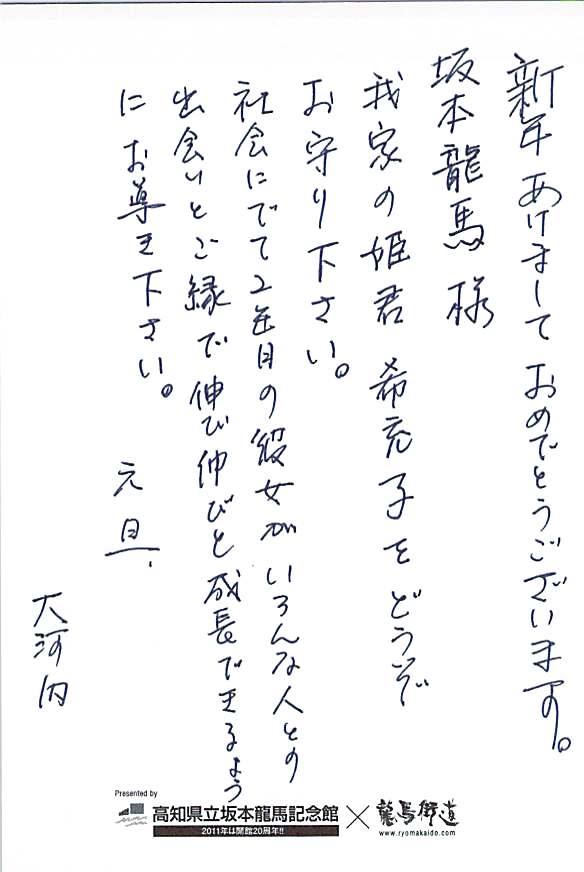 新年あけましておめでとうございます。
坂本龍馬様
我家の姫君 希充子をどうぞ
お守り下さい。
社会にでて2年目の彼女がいろんな人との
出会いとご縁で伸び伸びと成長できるよう
にお導き下さい。
元旦
大河内
Presented by
高知県立坂本龍馬記念館×龍馬街道
2011年は開館20周年!!
www.ryomakaido.com